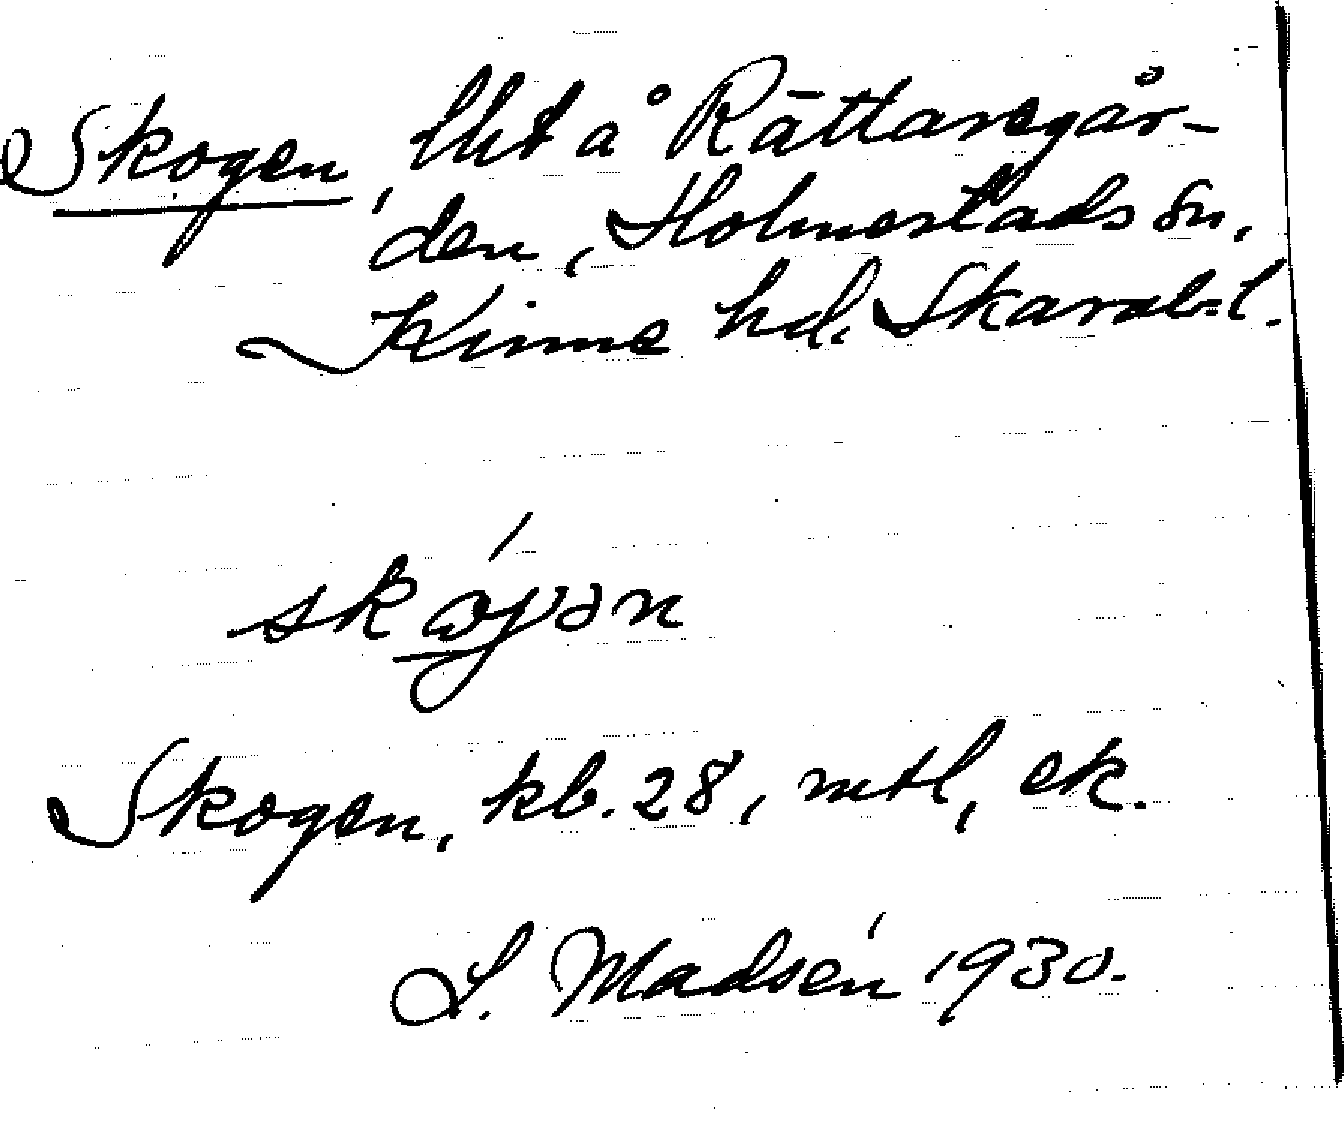 Skogen, lht å Rättaregår-
den, Holmestads sn,
Kinne hd. Skarab. l.
skógən
Skogen, kb. 28, mtl, ek.
S. Madsén 1930.